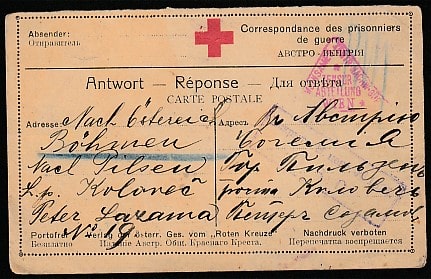 Absender:
Отправитель
Correspondance des prisonniers
de guerre
АВСТРО-ВЕНГРІЯ
ZENSUR
ABTEILUNG
WIEN
Antwort — Réponse — Для отвѣта
CARTE POSTALE
Adresse: Nach Österreich
Böhmen
Nach Pilsen
L.p. Koloveč
Peter
No 19
Адресъ: Въ Австрію
Богемія
Гор. Пильзень
почта Коловечь
Петеръ
Portofrei Verlag der österr. Ges. vom „Roten Kreuze" Nachdruck verboten
Безплатно Изданіе Австр. Общ. Краснаго Креста. Перепечатка воспрещается